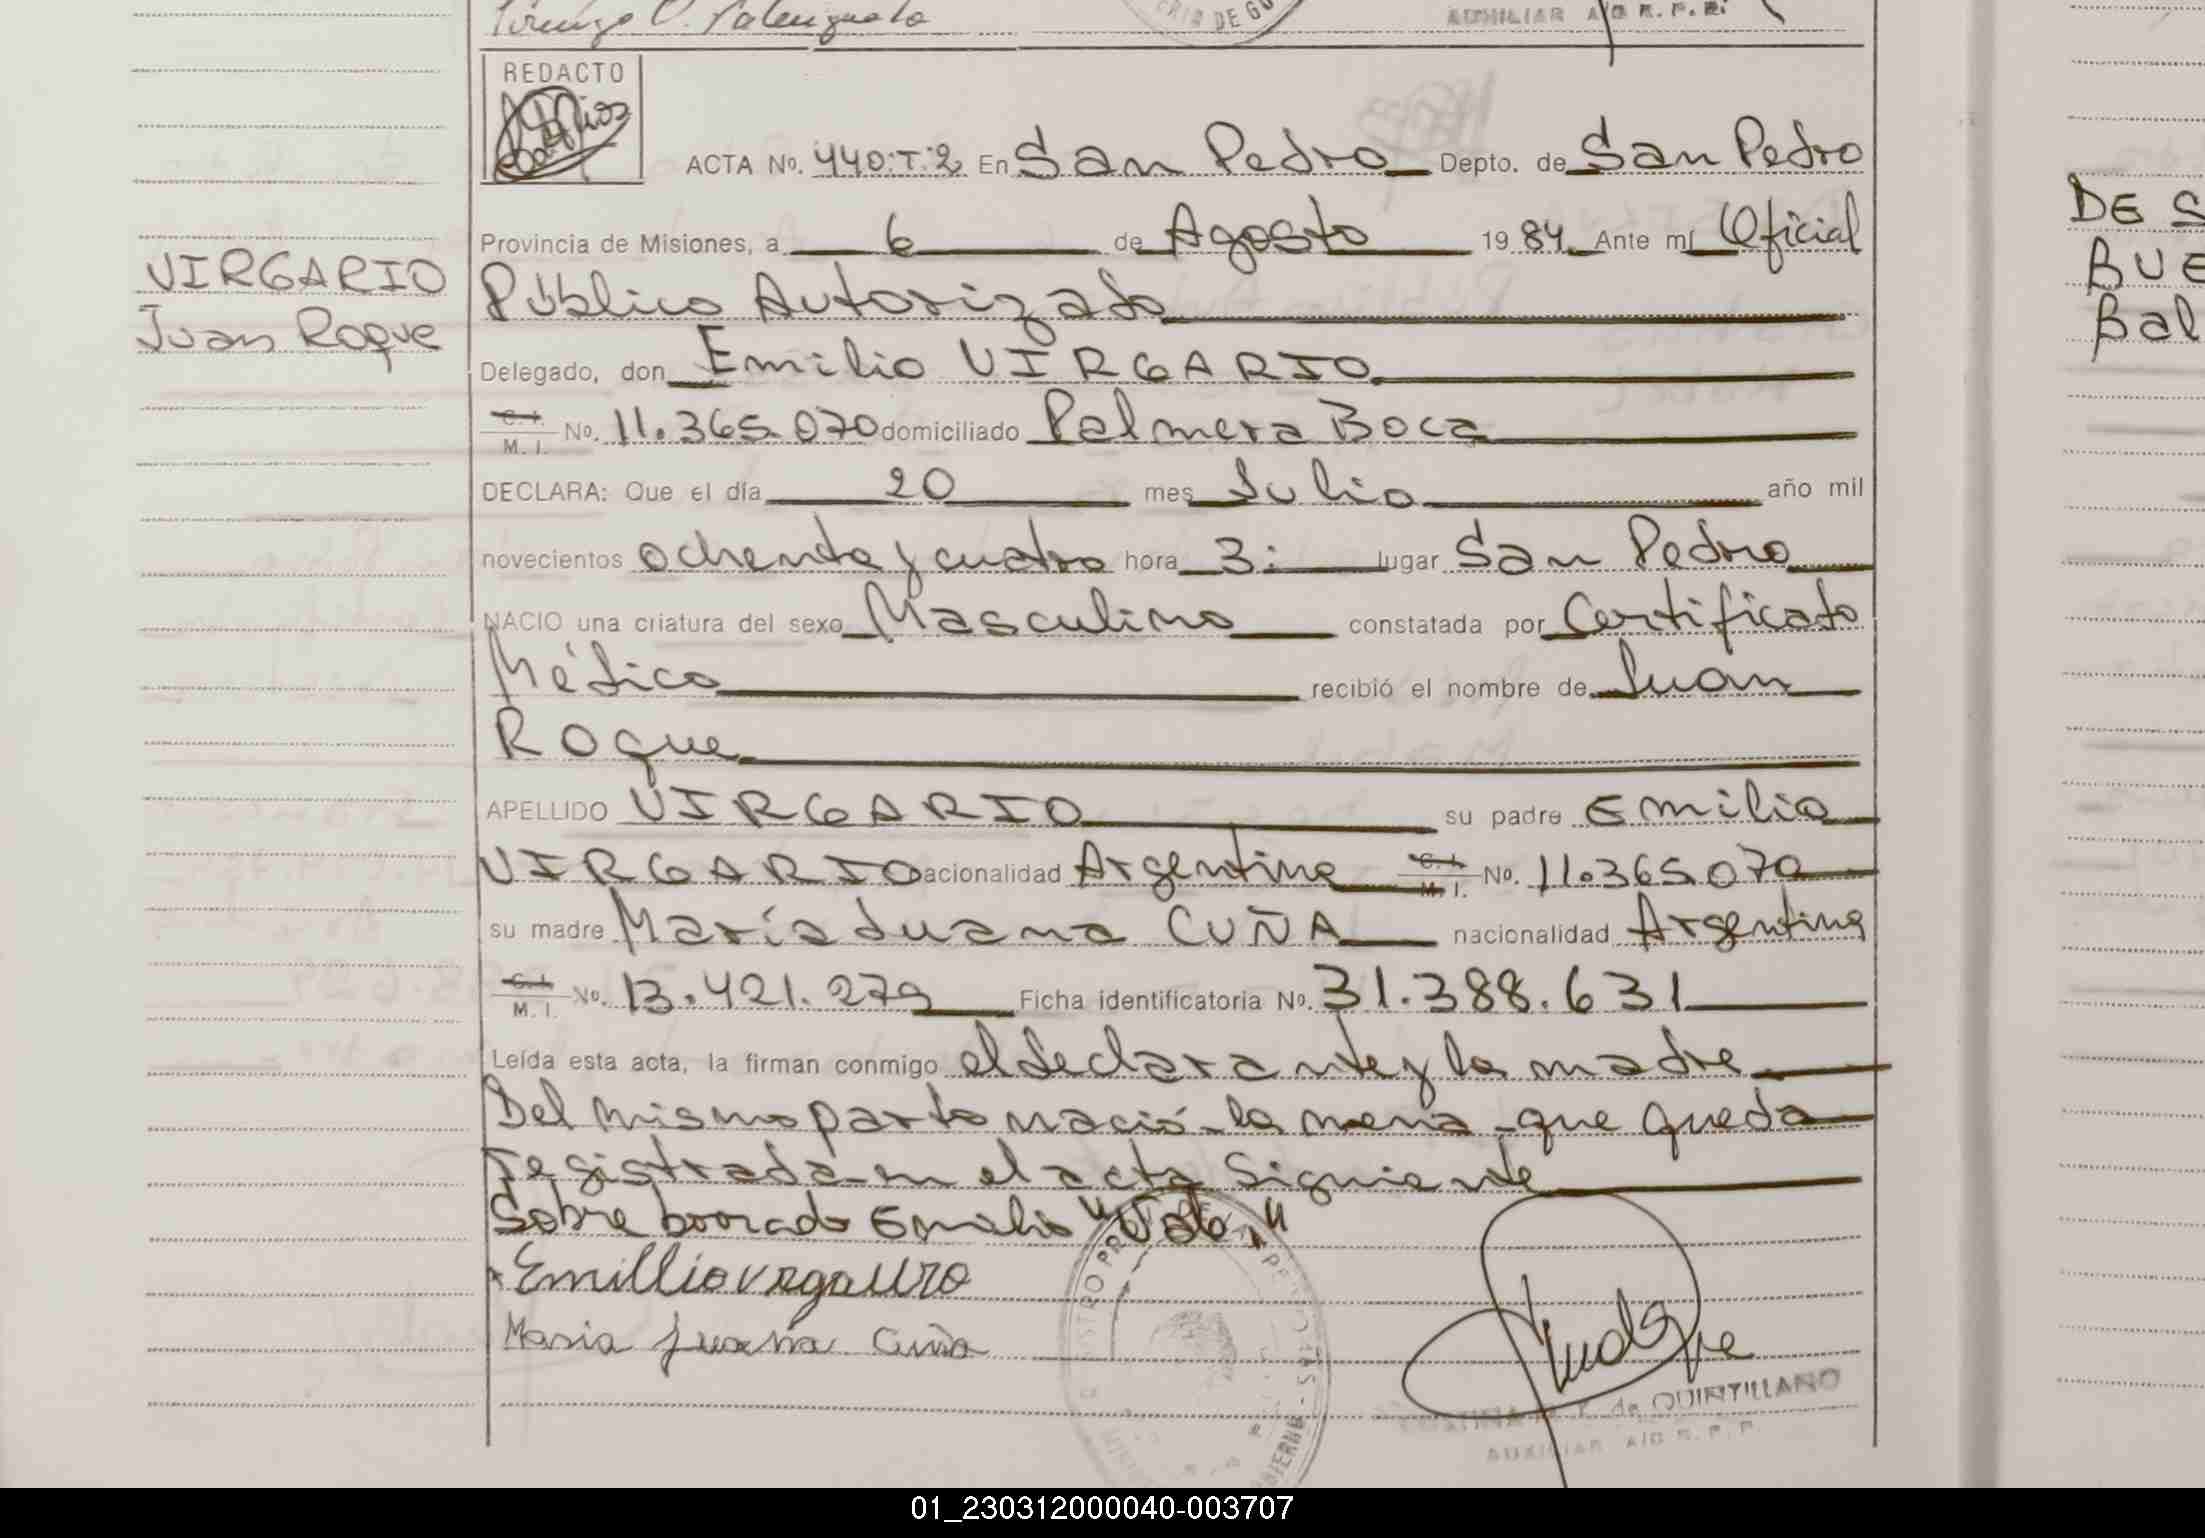 AUXILIAR A/C R. P. P.
REDACTO
ACTA No. 440:T:2 En San Pedro Depto. de San Pedro
Provincia de Misiones, a 6 de Agosto 1984 Ante mí Oficial
VIRGARIO
Juan Roque
Público Autorizado
Delegado, don Emilio VIRGARIO
C. I. M. I. No. 11.365.070 domiciliado Palmera Boca
DECLARA: Que el día 20 mes Julio año mil
novecientos ochenta y cuatro hora 3: lugar San Pedro
NACIO una criatura del sexo Masculino constatada por Certificado
Médico recibió el nombre de Juan
Roque
APELLIDO VIRGARIO su padre Emilio
VIRGARIO nacionalidad Argentina C. I. M. I. No. 11.365.070
su madre María Juana CUÑA nacionalidad Argentina
C. I. M. I. No. 13.421.279 Ficha identificatoria No. 31.388.631
Leída esta acta, la firman conmigo el declarante y la madre
Del mismo parto nació la nena que queda
registrada en el acta siguiente
Sobre borrado Emilio "Vale"
Emillio
Maria Juana Cuña
de QUINTILLANO
AUXILIAR A/C R. P. P.
DE S
BUE
Bal
01_230312000040-003707